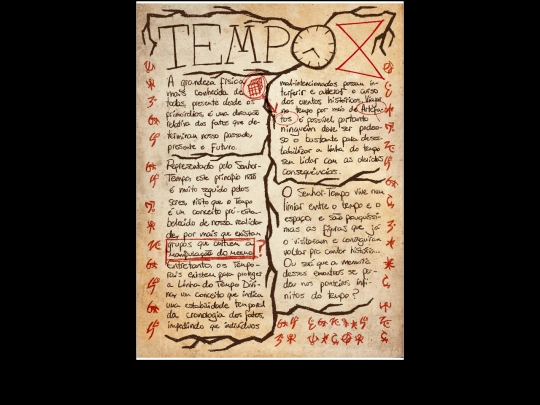 TEMPO
A grandeza física
mais conhecida de
todas, presente desde os
primórdios, é uma duração
relativa dos fatos que de-
terminam nosso passado,
presente e futuro.
Representado pelo Senhor-
Tempo, este princípio não
é muito seguido pelos
seres, visto que o Tempo
é um conceito pré-esta-
belecido de nossa realida-
de, por mais que existam
grupos que cultuem a
manipulação do mesmo.
?
Entretanto, os Tempo-
rais existem para proteger
a Linha do Tempo Divi-
na, um conceito que indica
uma estabilidade temporal
da cronologia dos fatos,
impedindo que indivíduos
mal-intencionados possam in-
terferir e alterar o curso
dos eventos históricos. Viagem
no tempo por meio de Artefa-
tos é possível, portanto
ninguém deve ser podero-
so o bastante para deses-
tabilizar a linha do tempo
sem lidar com as devidas
consequências.
O Senhor-Tempo vive num
limiar entre o tempo e o
espaço, e são pouquíssi-
mas as figuras que já
o visitaram e conseguiram
voltar pra contar história.
Ou será que a memória
desses encontros se per-
deu nos ponteiros infi-
nitos do tempo?